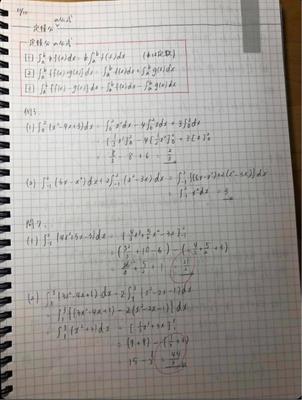 定積分の公式
定積分の公式
[1] ∫_a^b kf(x)dx = k∫_a^b f(x)dx (kは定数)
[2] ∫_a^b {f(x)+g(x)}dx = ∫_a^b f(x)dx + ∫_a^b g(x)dx
[3] ∫_a^b {f(x)-g(x)}dx = ∫_a^b f(x)dx - ∫_a^b g(x)dx
例3
(1) ∫_0^2 (x²-4x+3)dx = ∫_0^2 x²dx - 4∫_0^2 xdx + 3∫_0^2 dx
= [1/3 x³]_0^2 - 4[1/2 x²]_0^2 + 3[x]_0^2
= 8/3 - 8 + 6 = 2/3
(2) ∫_{-1}^2 (6x-x²)dx + 2∫_{-1}^2 (x²-3x)dx = ∫_{-1}^2 {(6x-x²)+2(x²-3x)}dx
= ∫_{-1}^2 x²dx = 3
問7
(1) ∫_{-1}^2 (4x²+5x-3)dx = [4/3 x³+5/2 x²-3x]_{-1}^2
= (32/3+10-6) - (-4/3+5/2+3)
= 21/2
(2) ∫_1^3 (3x²-4x+1)dx - 2∫_1^3 (x²-2x-1)dx
= ∫_1^3 {(3x²-4x+1) - 2(x²-2x-1)}dx
= ∫_1^3 (x²+3)dx = [1/3 x³+3x]_1^3
= (9+9) - (1/3+3)
15 - 1/3 = 44/3